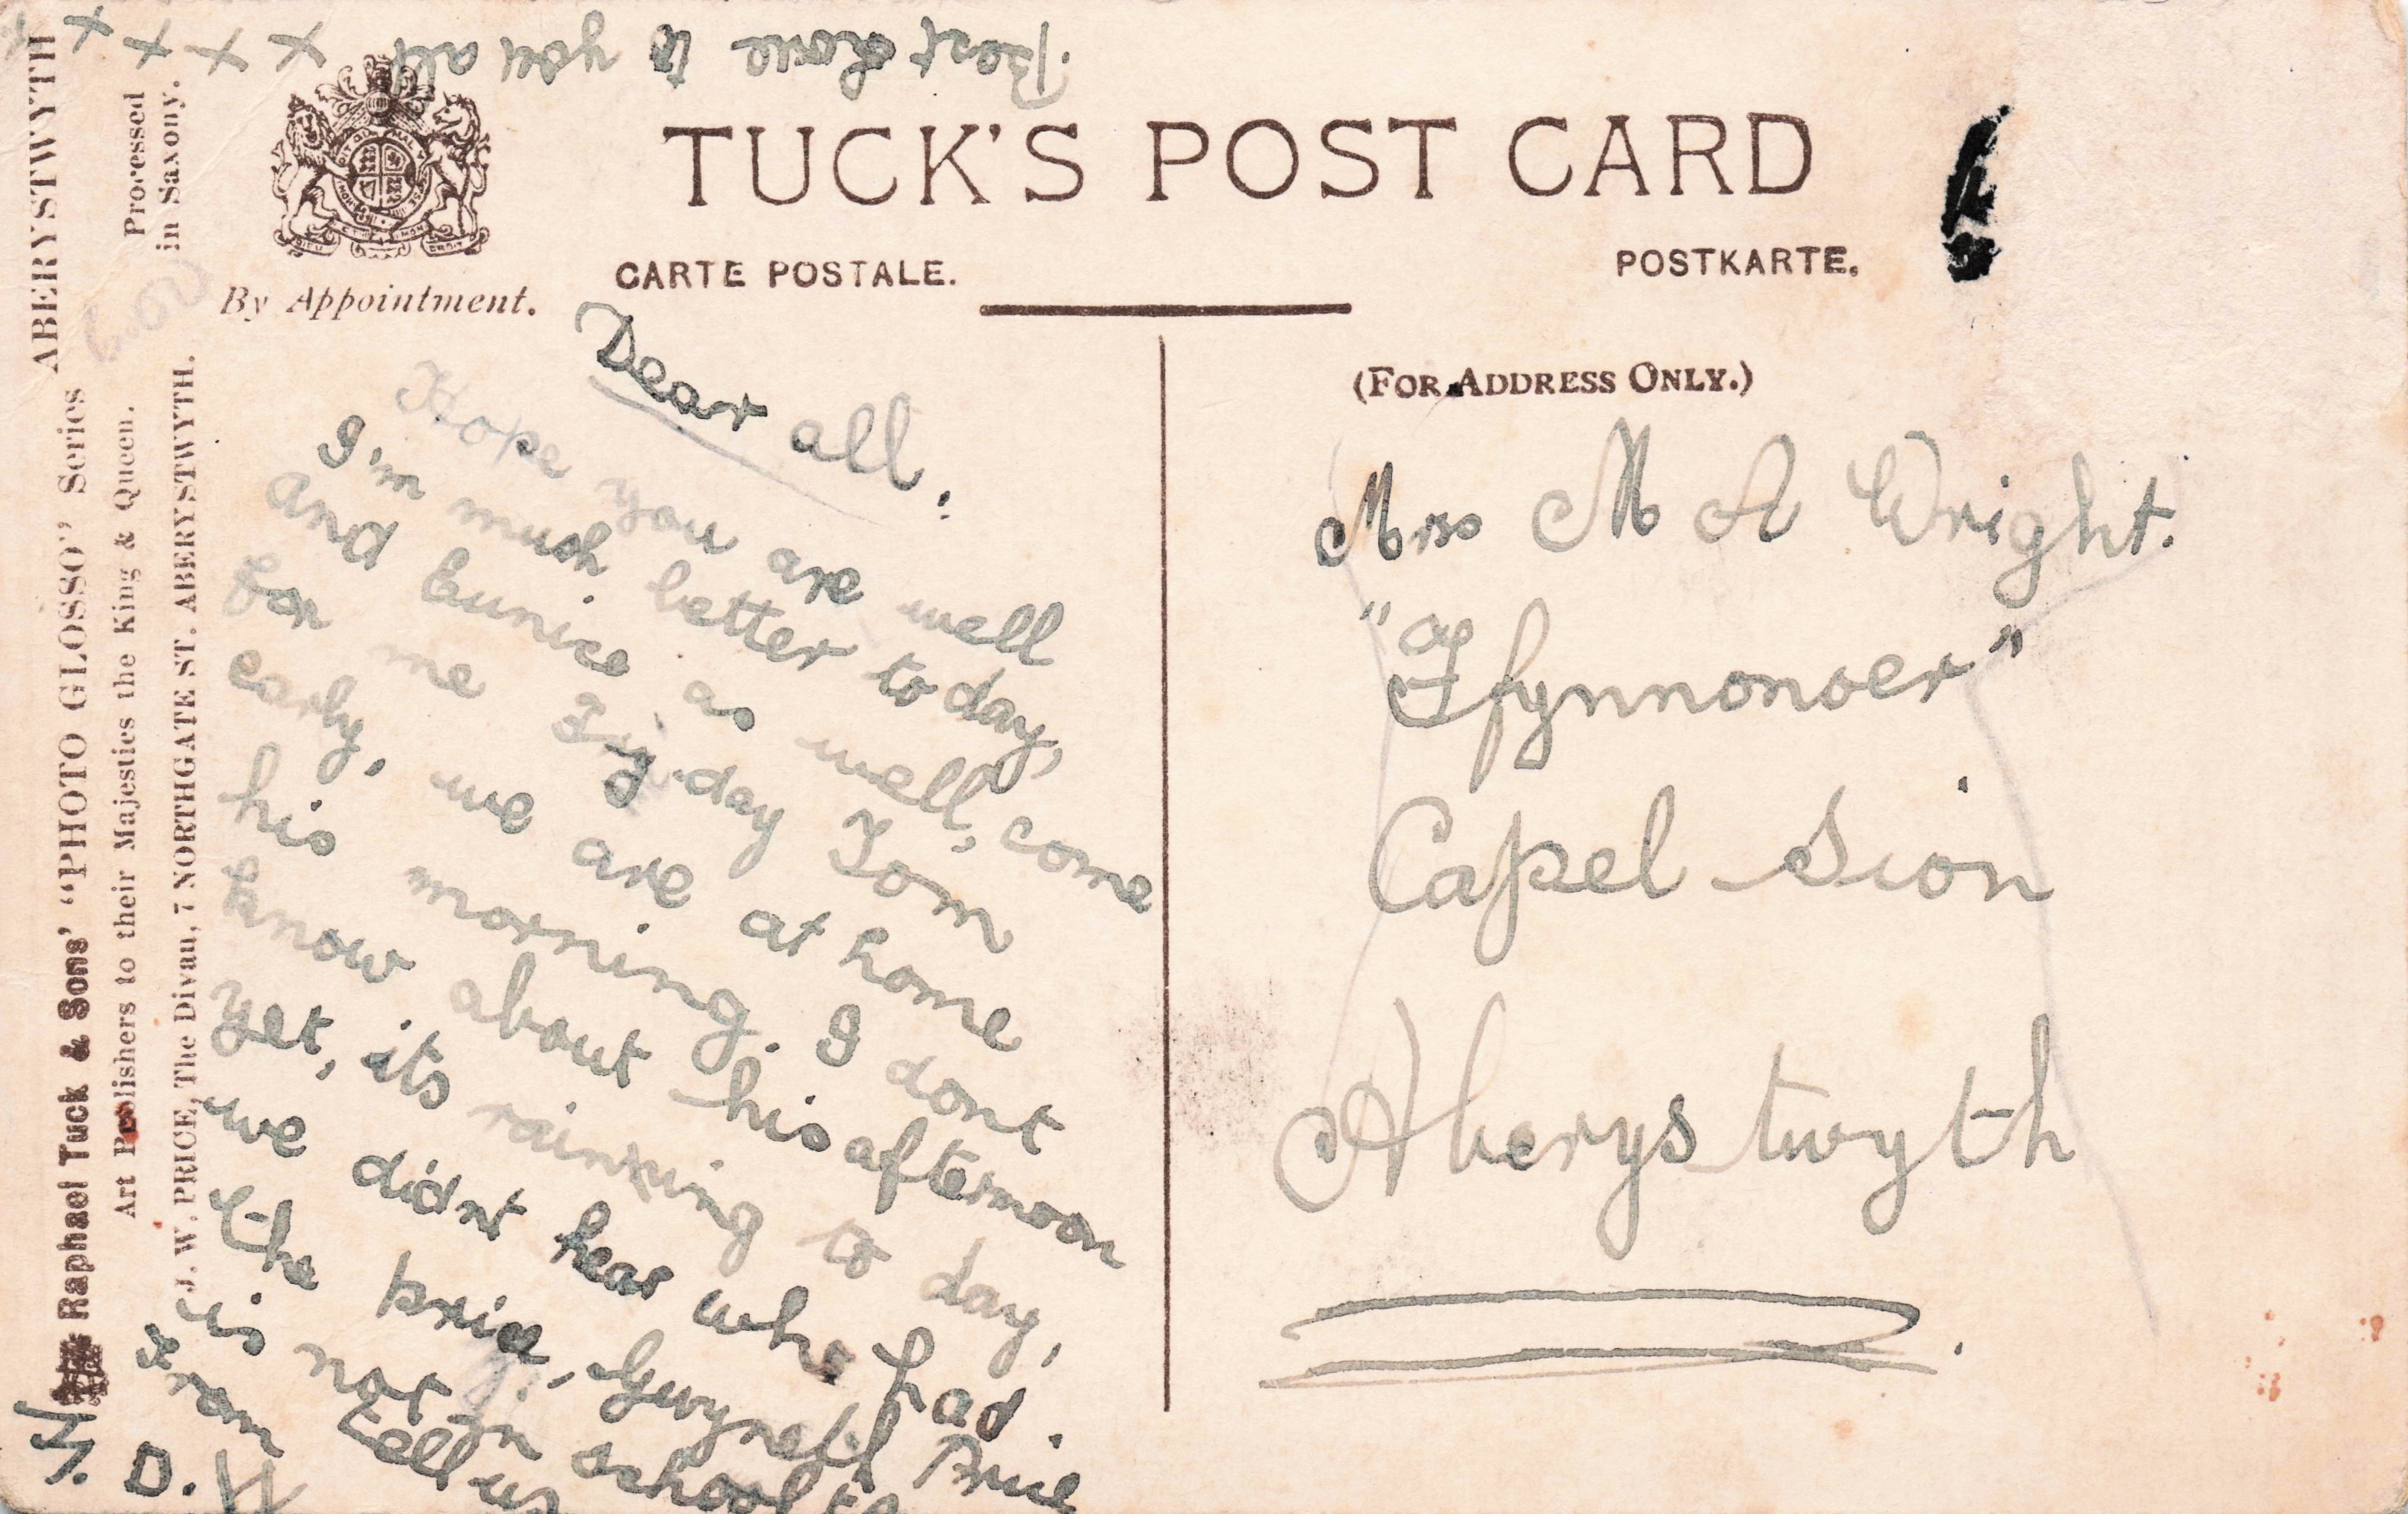 Best Love to you all x x x x x
TUCK'S POST CARD
CARTE POSTALE.
POSTKARTE.
By Appointment.
(FOR ADDRESS ONLY.)
ABERYSTWYTH
Processed
in Saxony.
Raphael Tuck & Sons' "PHOTO GLOSSO" Series
Art Publishers to their Majesties the King & Queen.
J. W. PRICE, The Divan, 7 NORTHGATE ST. ABERYSTWYTH.
Dear all.
Hope you are well
I'm much better to day,
and Eunice as well, come
for me day Tom
early, we are at home
his morning. I dont
know about his afternoon
yet, its raining to day,
we didnt hear who had
the Gwyneth
is not in school
From tell us
D. H
Mrs M A Wright.
"
Ffynnonoer"
Capel Sion
Aberystwyth